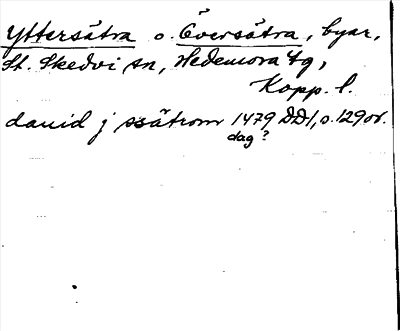 Yttersätra o. Översätra, byar,
St. Skedvi sn, Hedemora tg,
Kopp. l.
dauid j ssätrom 1479 DD 1, s. 129 or.
dag ?